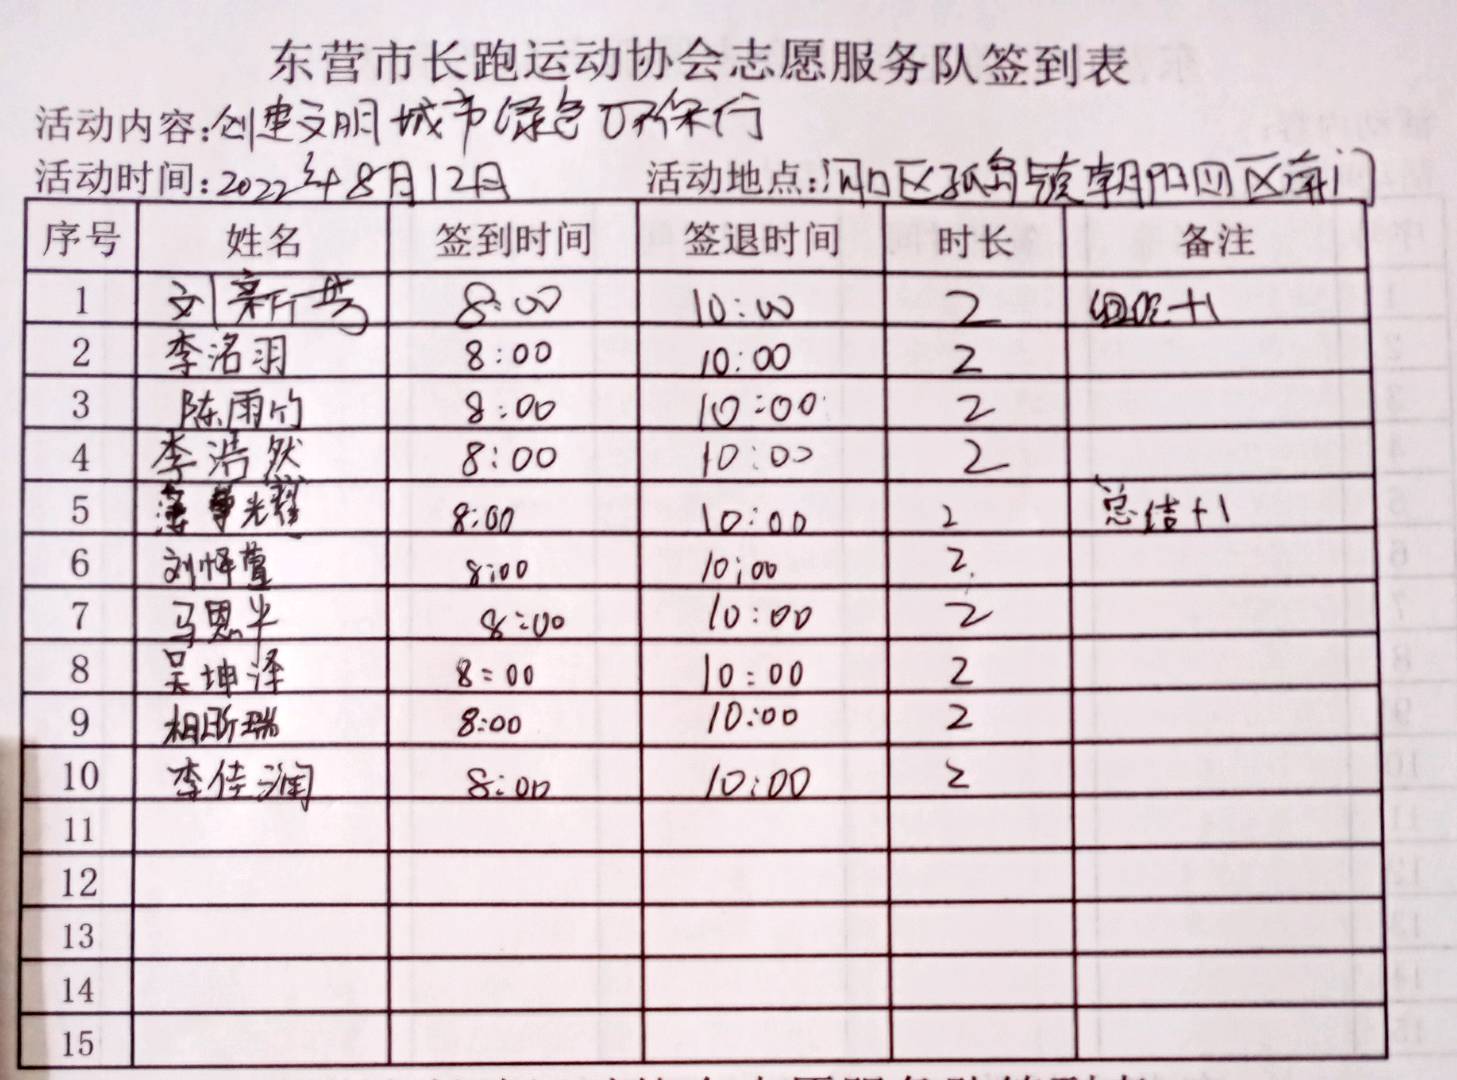 东营市长跑运动协会志愿服务队签到表
活动内容:创建文明城市绿色环保行
活动时间:2022年8月12日 活动地点:河口区孤岛镇朝阳四区南门
序号 姓名 签到时间 签退时间 时长 备注
1 刘新芳 8:00 10:00 2 组织+1
2 李洺羽 8:00 10:00 2
3 陈雨竹 8:00 10:00 2
4 李浩然 8:00 10:00 2
5 光耀 8:00 10:00 2 总结+1
6 刘怿萱 8:00 10:00 2
7 马恩 8:00 10:00 2
8 吴坤泽 8:00 10:00 2
9 相昕瑞 8:00 10:00 2
10 李佳润 8:00 10:00 2
11
12
13
14
15